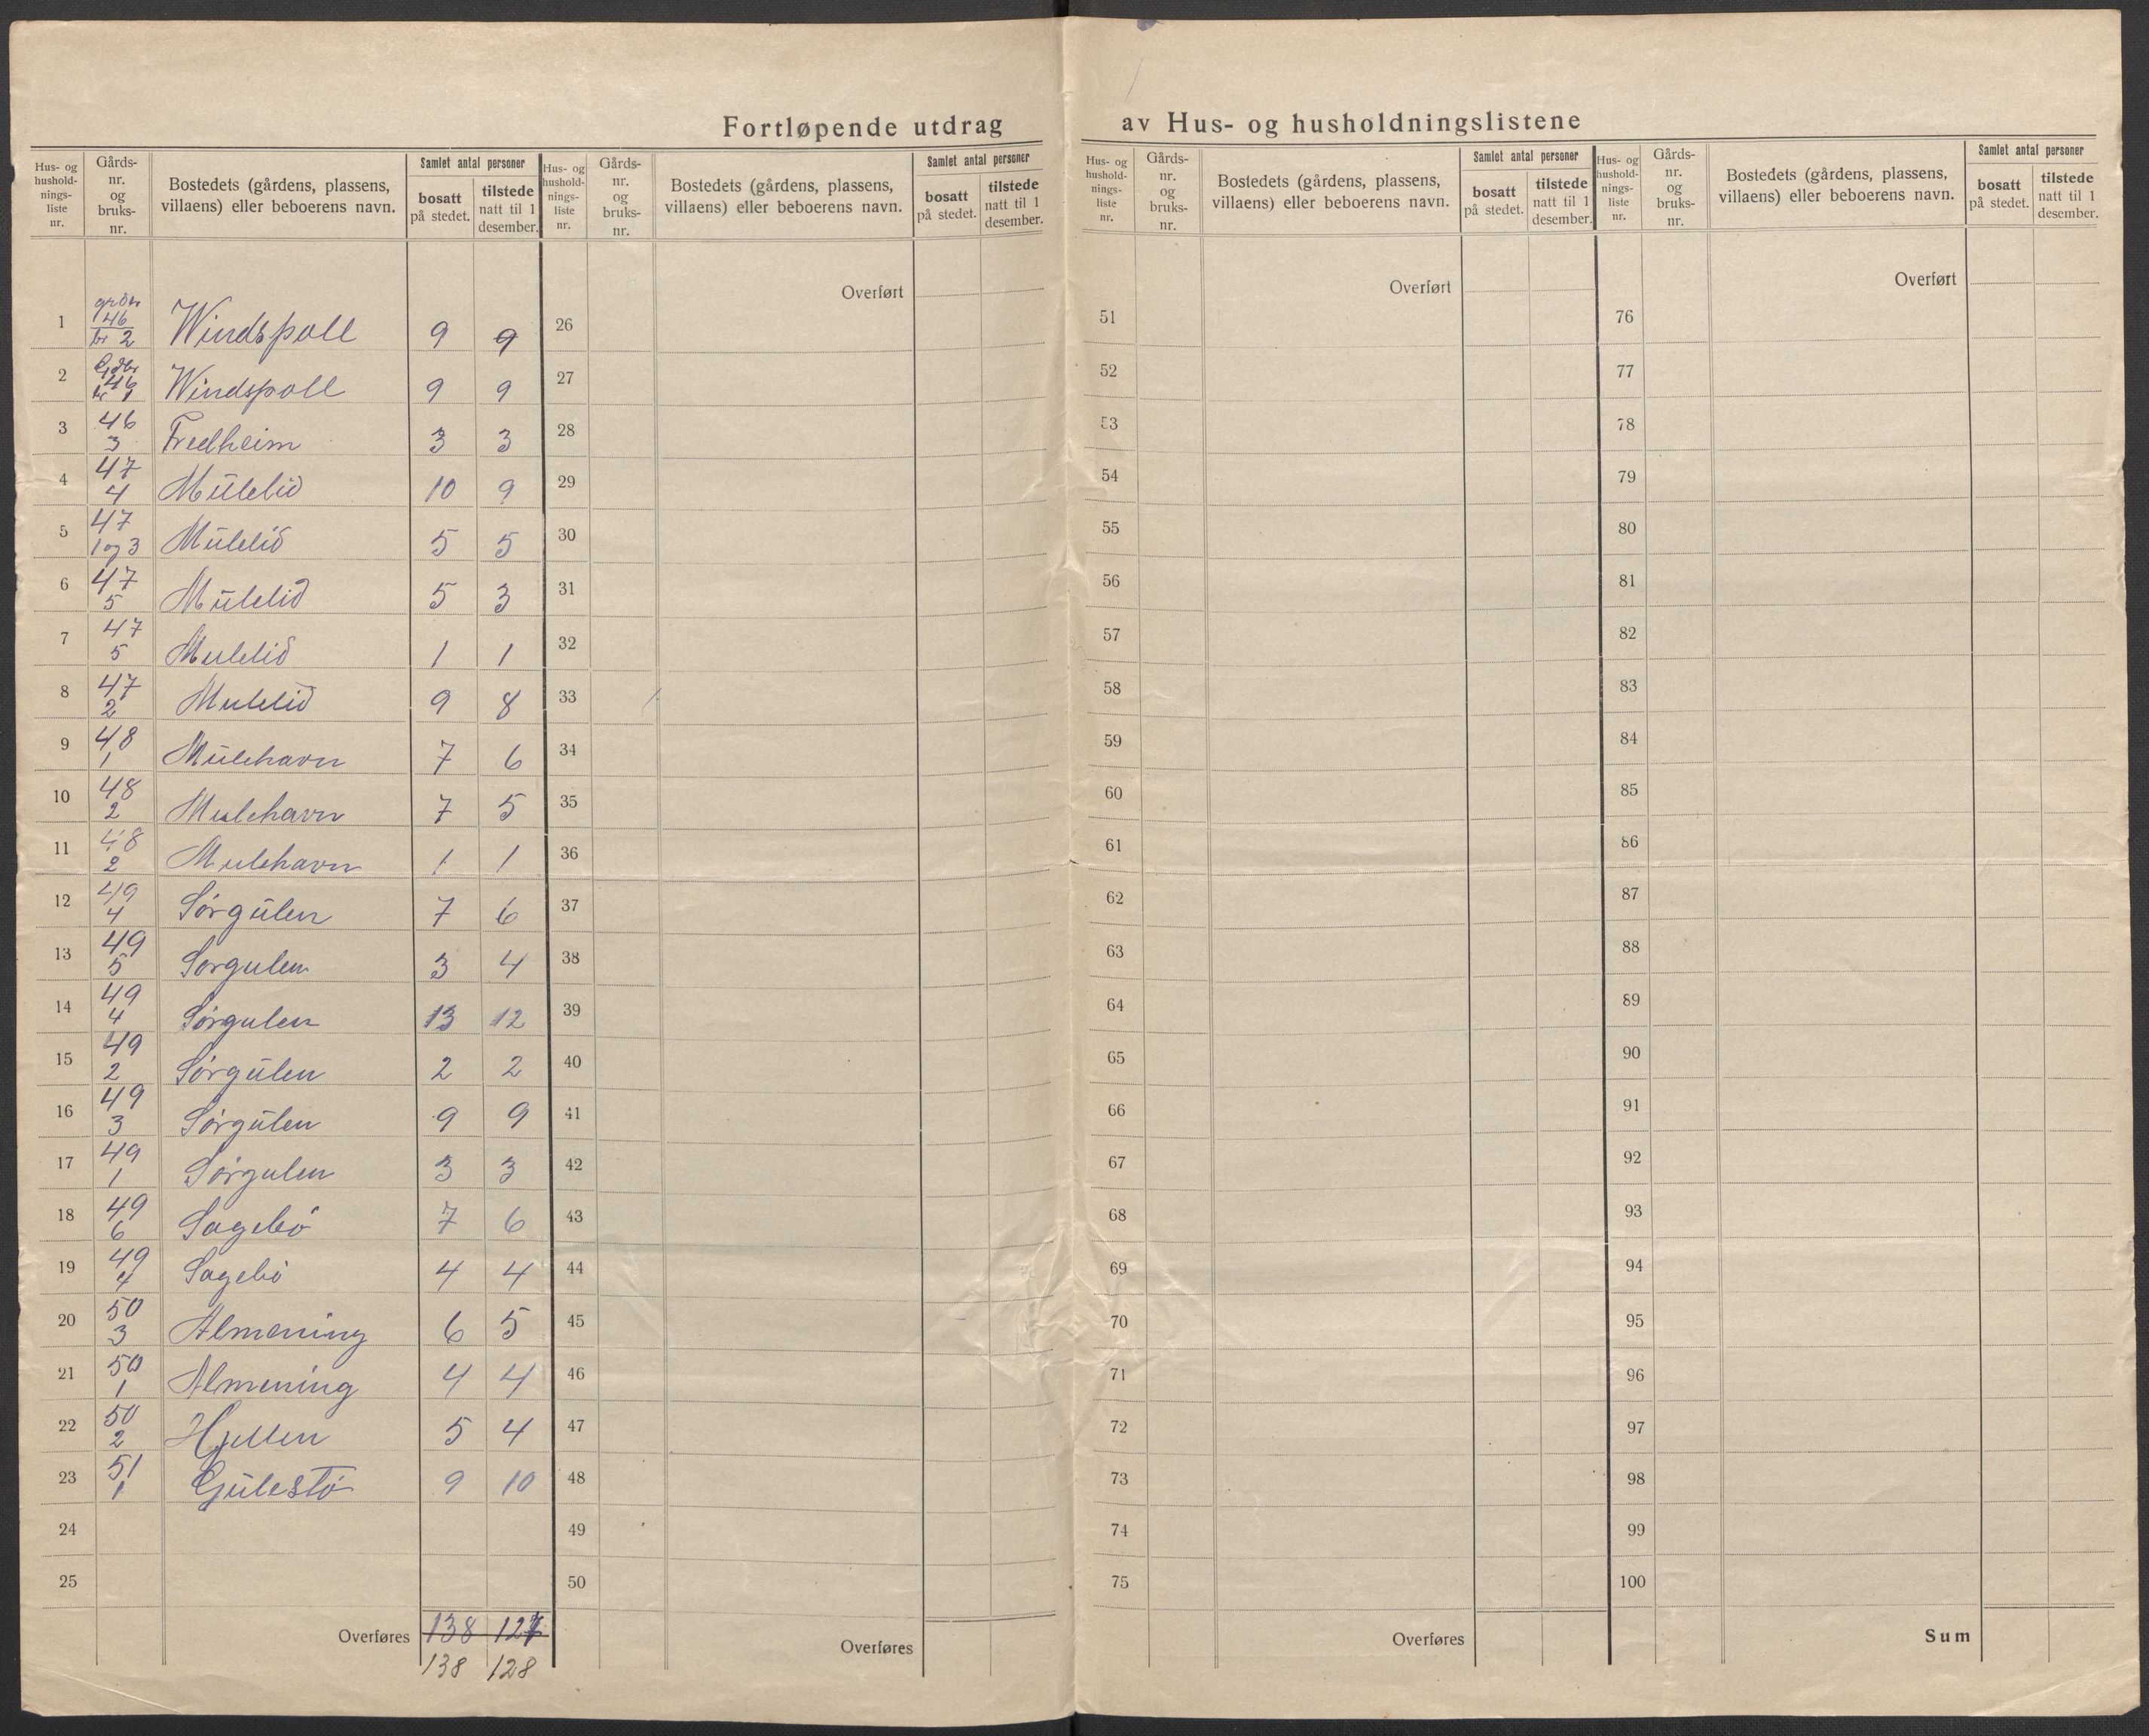 Fortløpende utdrag av Hus- og husholdningslistene
Hus- og hushold-nings-liste nr. Gårds-nr. og bruks-nr. Bostedets (gårdens, plassens, villaens) eller beboerens navn. Samlet antal personer bosatt på stedet. tilstede natt til 1 desember.
Hus- og hushold-nings-liste nr. Gårds-nr. og bruks-nr. Bostedets (gårdens, plassens, villaens) eller beboerens navn. Samlet antal personer bosatt på stedet. tilstede natt til 1 desember.
Hus- og hushold-nings-liste nr. Gårds-nr. og bruks-nr. Bostedets (gårdens, plassens, villaens) eller beboerens navn. Samlet antal personer bosatt på stedet. tilstede natt til 1 desember.
Hus- og hushold-nings-liste nr. Gårds-nr. og bruks-nr. Bostedets (gårdens, plassens, villaens) eller beboerens navn. Samlet antal personer bosatt på stedet. tilstede natt til 1 desember.
Overført Overført Overført
1 46 br 2 Windspoll 9 9 26 51 76
2 46 br 1 Windspoll 9 9 27 52 77
3 46 3 Fredheim 3 3 28 53 78
4 47 4 Mulelid 10 9 29 54 79
5 47 1 og 3 Mulelid 5 5 30 55 80
6 47 5 Mulelid 5 3 31 56 81
7 47 5 Mulelid 1 1 32 57 82
8 47 2 Mulelid 9 8 33 58 83
9 48 1 Mulehavn 7 6 34 59 84
10 48 2 Mulehavn 7 5 35 60 85
11 48 2 Mulehavn 1 1 36 61 86
12 49 4 Sørgulen 7 6 37 62 87
13 49 5 Sørgulen 3 4 38 63 88
14 49 4 Sørgulen 13 12 39 64 89
15 49 2 Sørgulen 2 2 40 65 90
16 49 3 Sørgulen 9 9 41 66 91
17 49 1 Sørgulen 3 3 42 67 92
18 49 6 Sagebø 7 6 43 68 93
19 49 4 Sagebø 4 4 44 69 94
20 50 3 Almening 6 5 45 70 95
21 50 1 Almening 4 4 46 71 96
22 50 2 Hjellen 5 4 47 72 97
23 51 1 Gulestø 9 10 48 73 98
24 49 74 99
25 50 75 100
Overføres 138 127 Overføres Overføres Sum
138 128